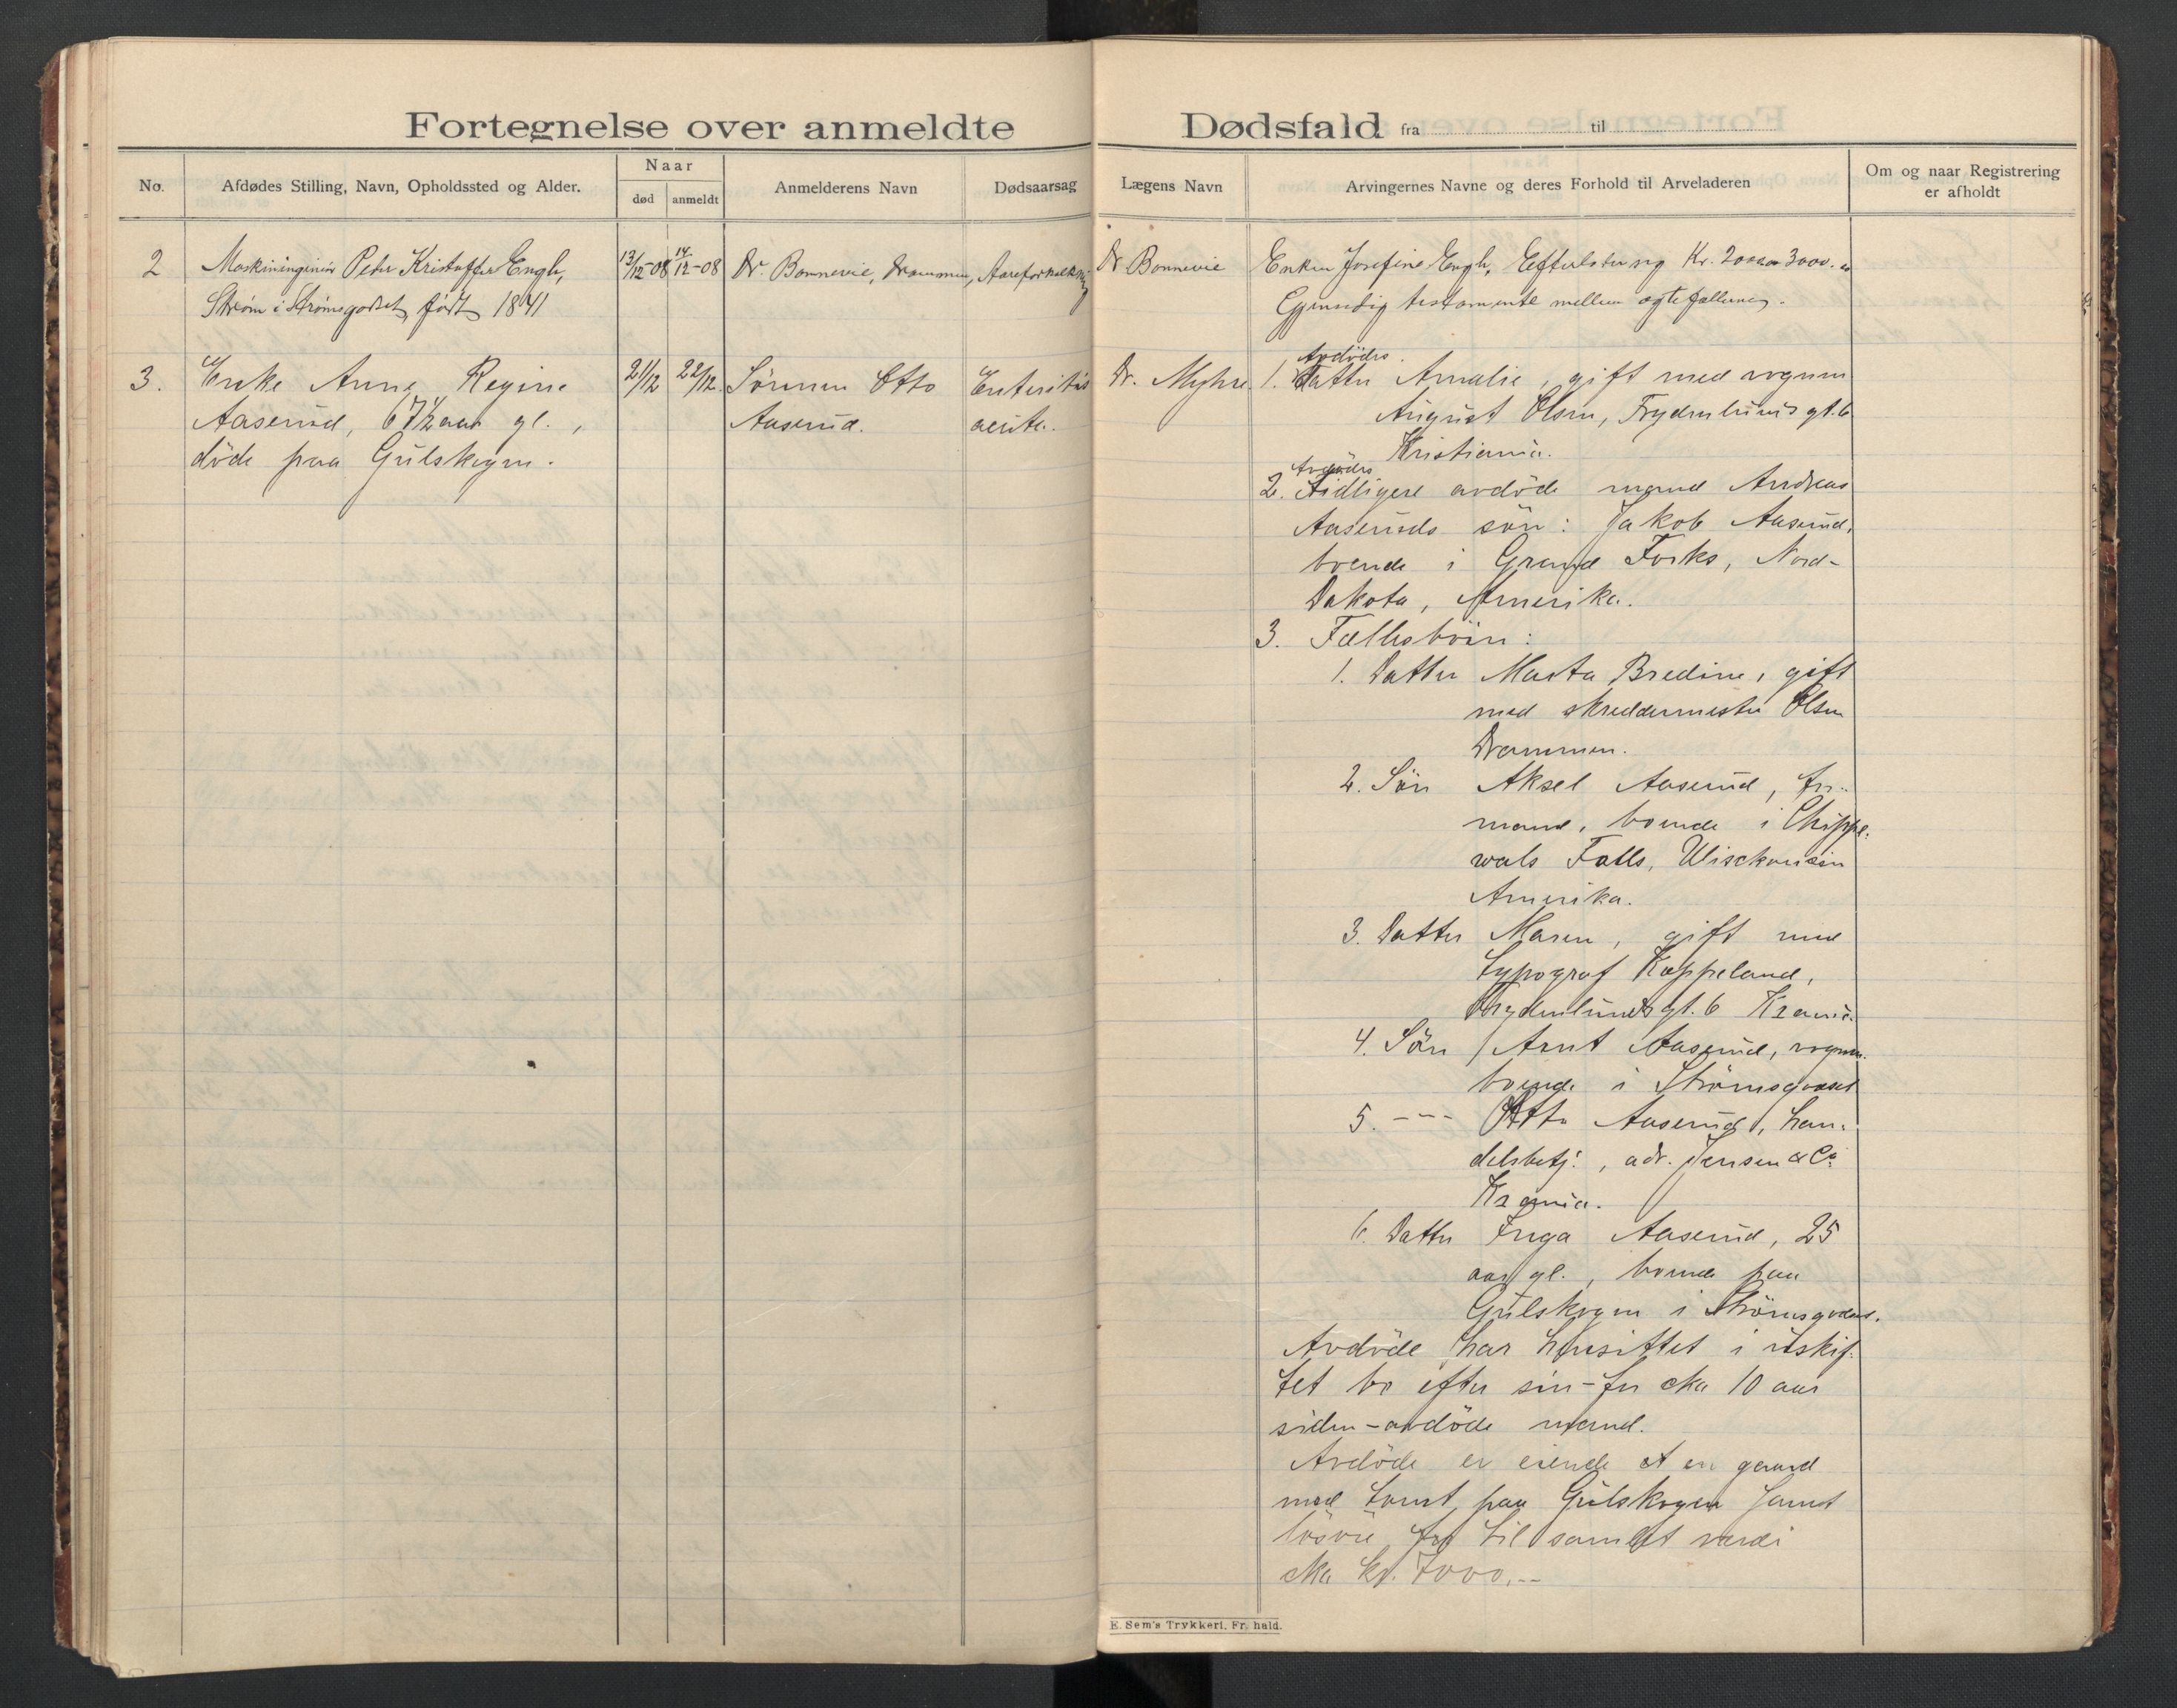 Fortegnelse over anmeldte Dødsfald fra til
No.
Afdødes Stilling, Navn, Opholdssted og Alder.
Naar
død
anmeldt
Anmelderens Navn
Dødsaarsag
Lægens Navn
Arvingernes Navne og deres Forhold til Arveladeren
Om og naar Registrering
er afholdt
2
Maskiningeniør Peter Kristoffer Engh,
Strøm i Strømsgodset, født 1841
13/12-08
14/12-08
Dr. Bonnevie, Drammen,
Aareforkalkning
Dr Bonnevie
Enken Josefine Engh, Efterlader sig Kr. 2000 a 3000.
Gjensidig testamente mellem ægtefællerne.
3.
Enke Anne Regine
Aaserud, 67½ aar gl.,
döde paa Gulskogen.
21/12
22/12.
Sönnen Otto
Aaserud.
Enteritis
acuta.
Dr. Myhre
Avdödes.
1. Datter Amalie, gift med vognm
August Olsen, Frydenlunds gt. 6
Kristiania.
Avdödes
2. tidligere avdöde mand Andreas
Aaseruds sön: Jakob Aaserud,
boende i Grand Forks, Nord-
Dakota, Amerika.
3. Fællesbörn:
1. Datter Marta Bredine, gift
med skreddermester Olsen
Drammen.
2. Sön Aksel Aaserud,
mand, boende i Chippe-
wals Falls, Wisckonsin
Amerika.
3. Datter Maren, gift med
typograf Kappeland,
Frydenlunds gt. 6 Krania.
4. Sön Arnt Aaserud, vognm.
boende i Strömsgodset
5. --- Otto Aaserud, han-
delsbetj., adr. Jensen & Co
Krania.
6. Datter Inga Aaserud, 25
aar gl., boende paa
Gulskogen i Strömsgodset.
Avdöde har hensittet i uskif-
tet bo efter sin - for cka 10 aar
siden - avdöde mand.
Avdöde er eiende et en gaard
med tomt paa Gulskogen samt
lösöre, alt til samlet værdi
cka kr. 7000.--
E. Sem's Trykkeri. Fr.hald.